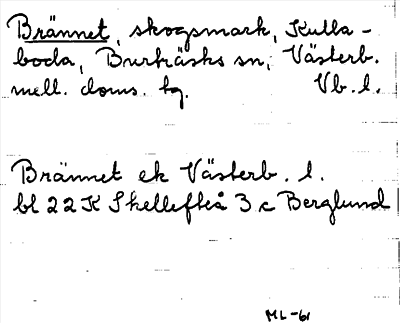 Brännet, skogsmark, Kulla-
boda, Burträsks sn, Västerb.
mell. doms. hg. Vb. l.
Brännet ek Västerb. l.
bl 22 K Skellefteå 3 c Berglund
ML-61